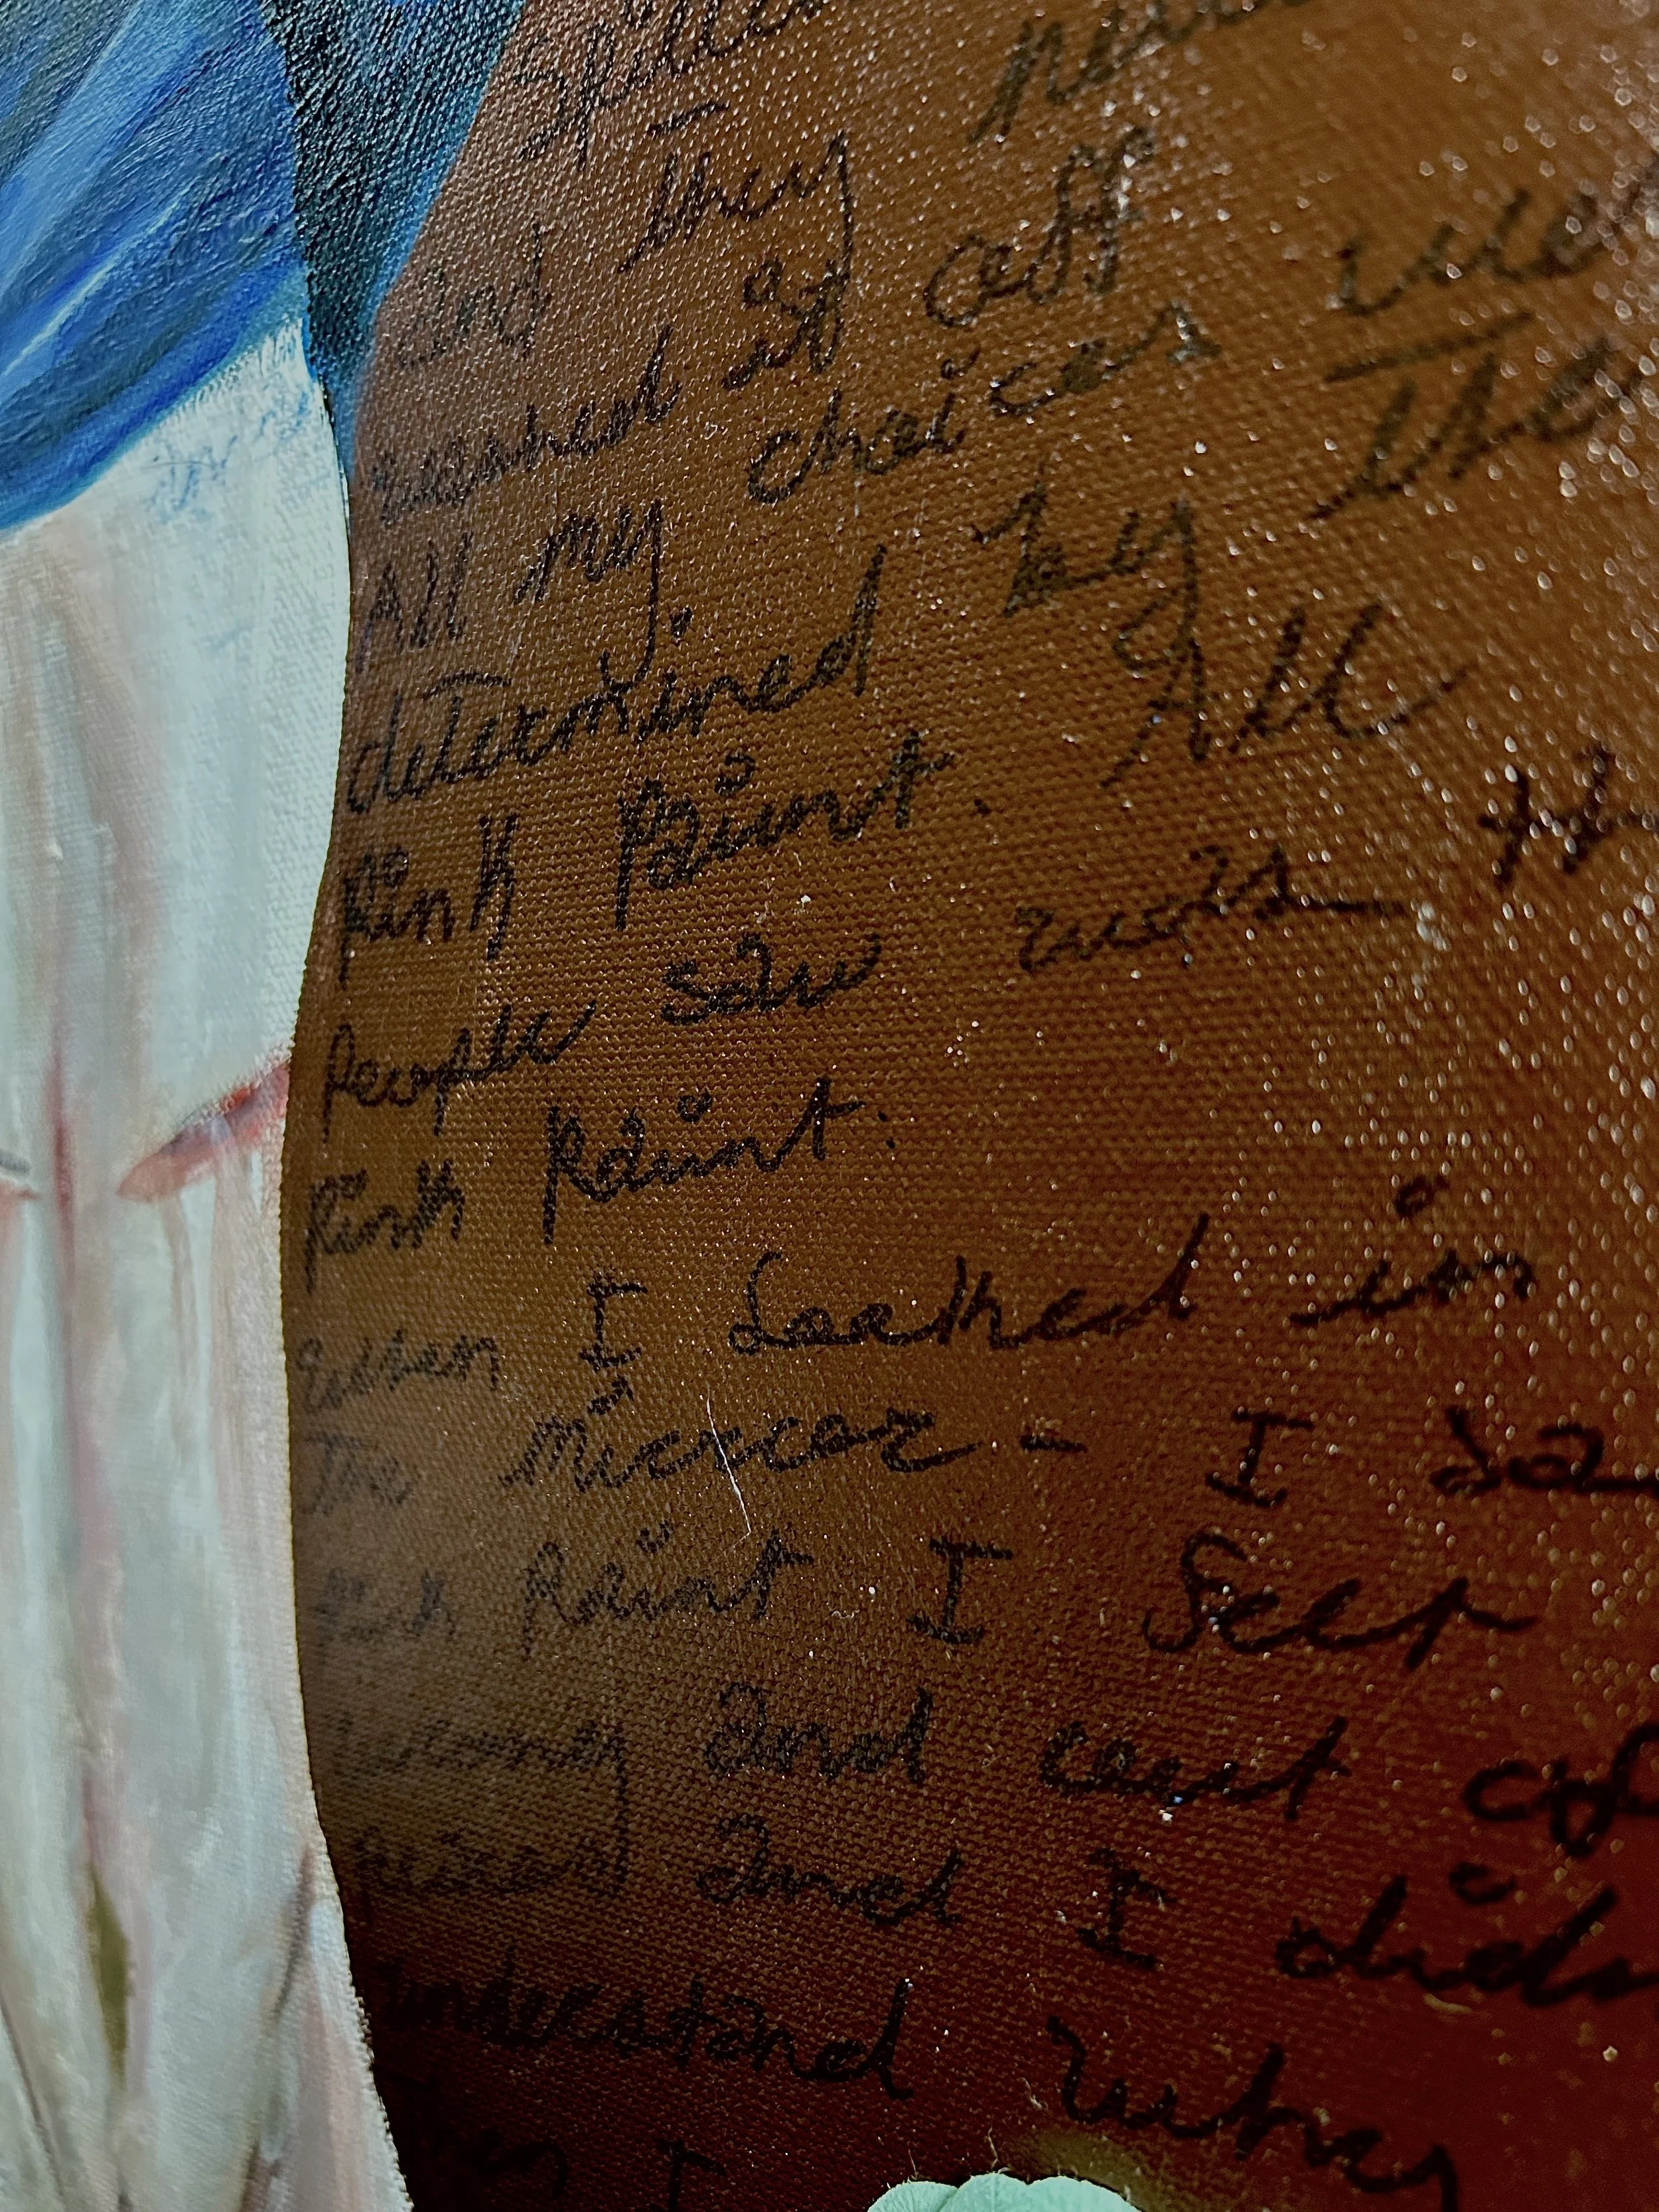 Spilled
And they never
washed it off
All my choices were
determined by the
Pink Paint. All
People saw was the
Pink Paint.
When I Looked in
The Mirror - I sa
Pink Paint I Feel
and cut of
and I didn
understand why
I